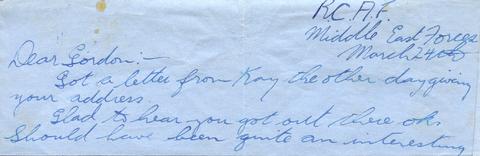 R.C.A.F.
Middle East Forces
March 24th
Dear Gordon:-
Got a letter from Kay the other day giving
your address.
Glad to hear you got out there ok.
Should have been quite an interesting